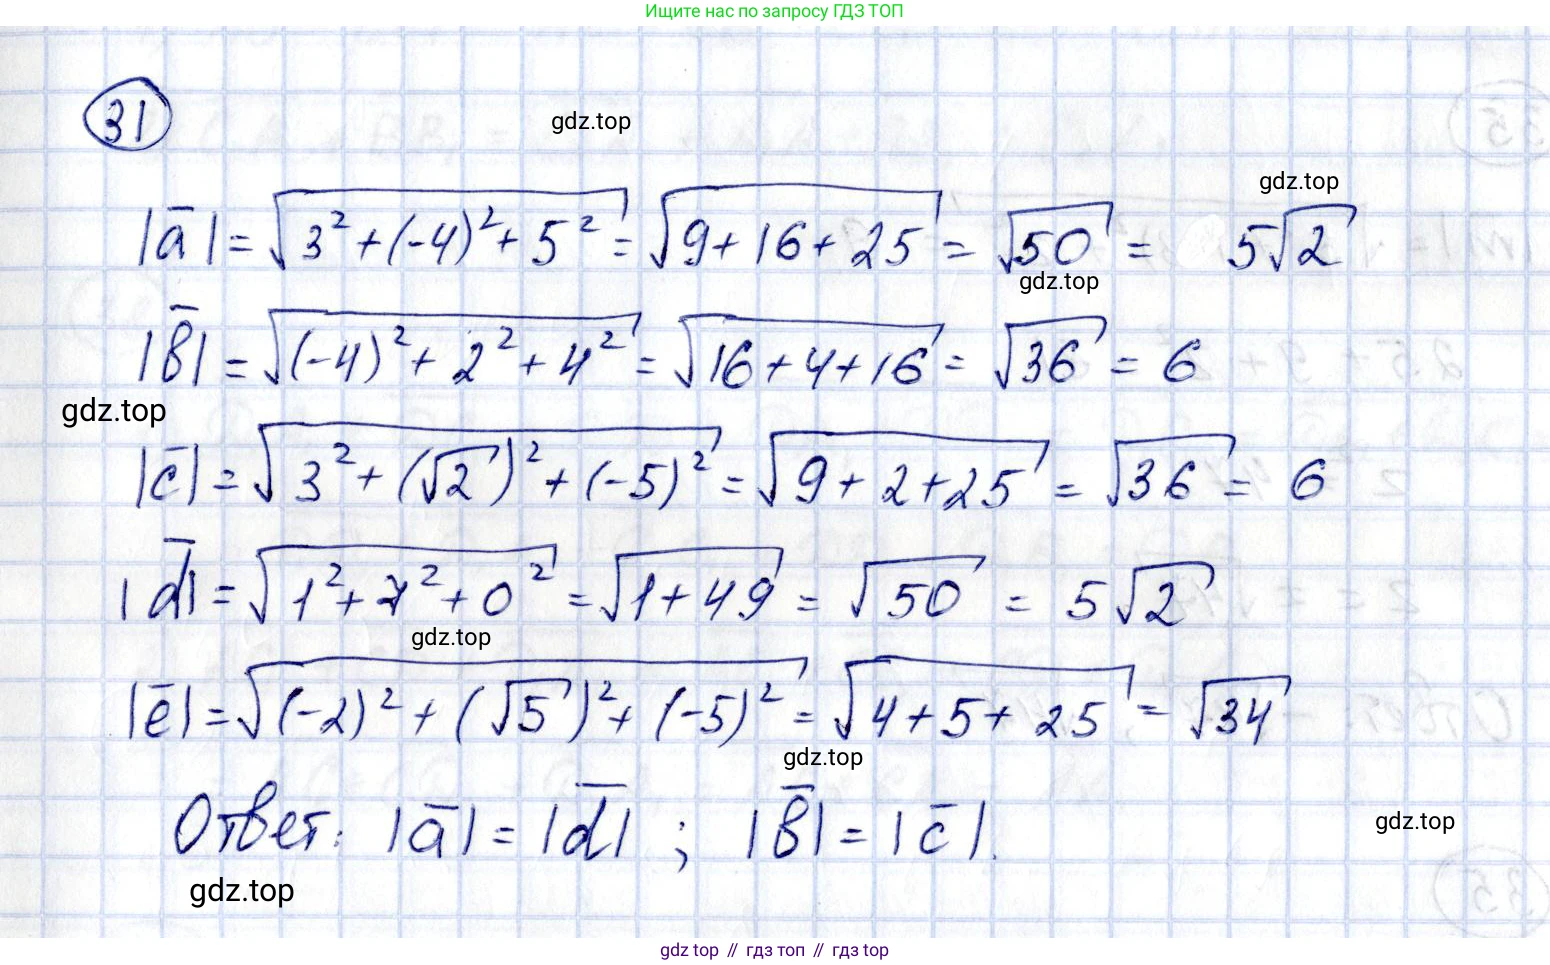 Ищите нас по запросу ГДЗ ТОП
31
gdz.top
gdz.top
|a̅| = √(3² + (-4)² + 5²) = √(9 + 16 + 25) = √50 = 5√2
gdz.top
|b̅| = √((-4)² + 2² + 4²) = √(16 + 4 + 16) = √36 = 6
gdz.top
|c̅| = √(3² + (√2)² + (-5)²) = √(9 + 2 + 25) = √36 = 6
|d̅| = √(1² + 7² + 0²) = √(1 + 49) = √50 = 5√2
gdz.top
|e̅| = √((-2)² + (√5)² + (-5)²) = √(4 + 5 + 25) = √34
gdz.top
Ответ: |a̅| = |d̅| ; |b̅| = |c̅|.
gdz.top
gdz.top
gdz top // гдз топ // гдз top